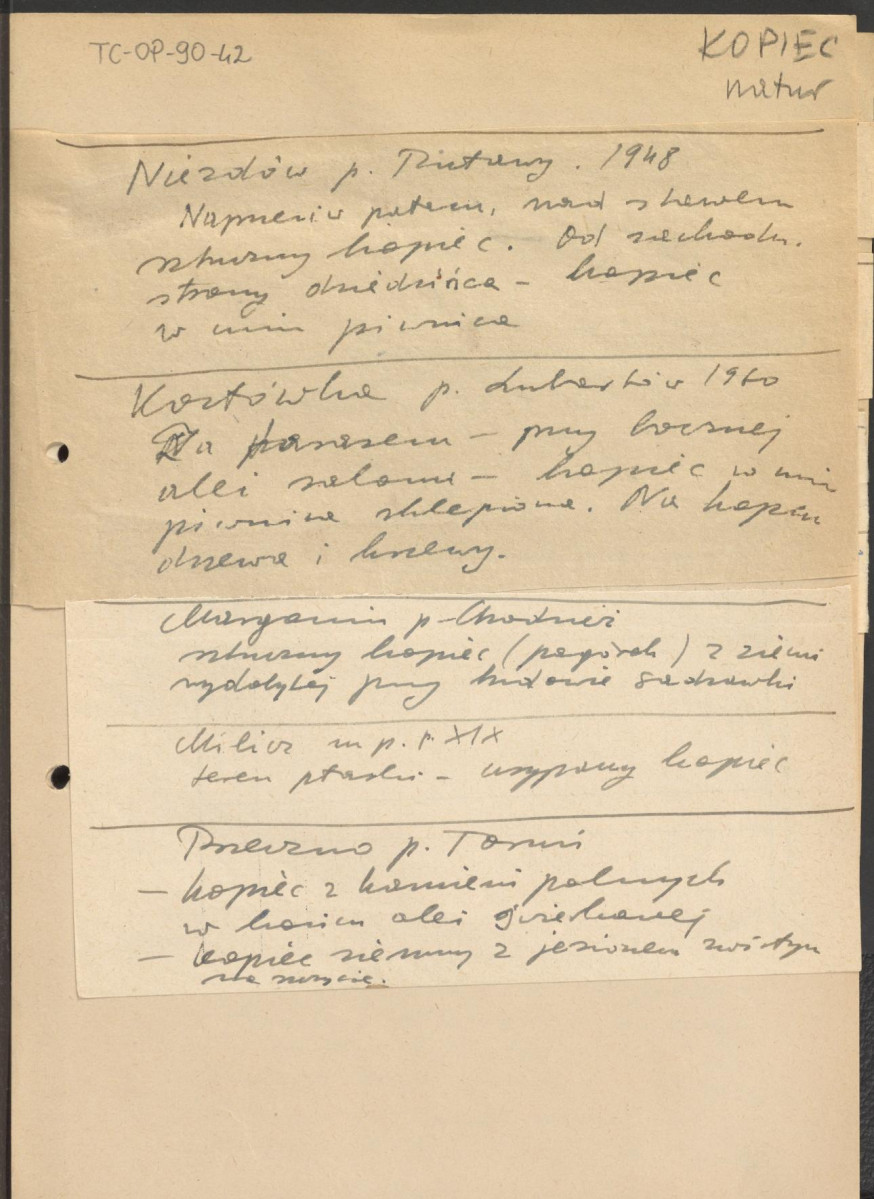 TC-OP-90-42
KOPIEC
natur
Niezdów p. Puławy. 1948
Naprzeciw pałacu, nad stawem
sztuczny kopiec. Od zachodn.
strony dziedzińca - kopiec
w nim piwnica
Kozłówka p. Lubartów 1960
Za parasem - przy bocznej
alei - kopiec w nim
piwnica sklepiona. Na kopcu
drzewa i krzewy.
Margonin p. Chodzież
sztuczny kopiec (pagórek) z ziemi
wydobytej przy budowie sadzawki
Milicz p. XIX
teren płaski - usypany kopiec
Przeczno p. Toruń
- kopiec z kamieni polnych
w końcu alei
- kopiec ziemny z jesionem zwisłym
na szczycie.